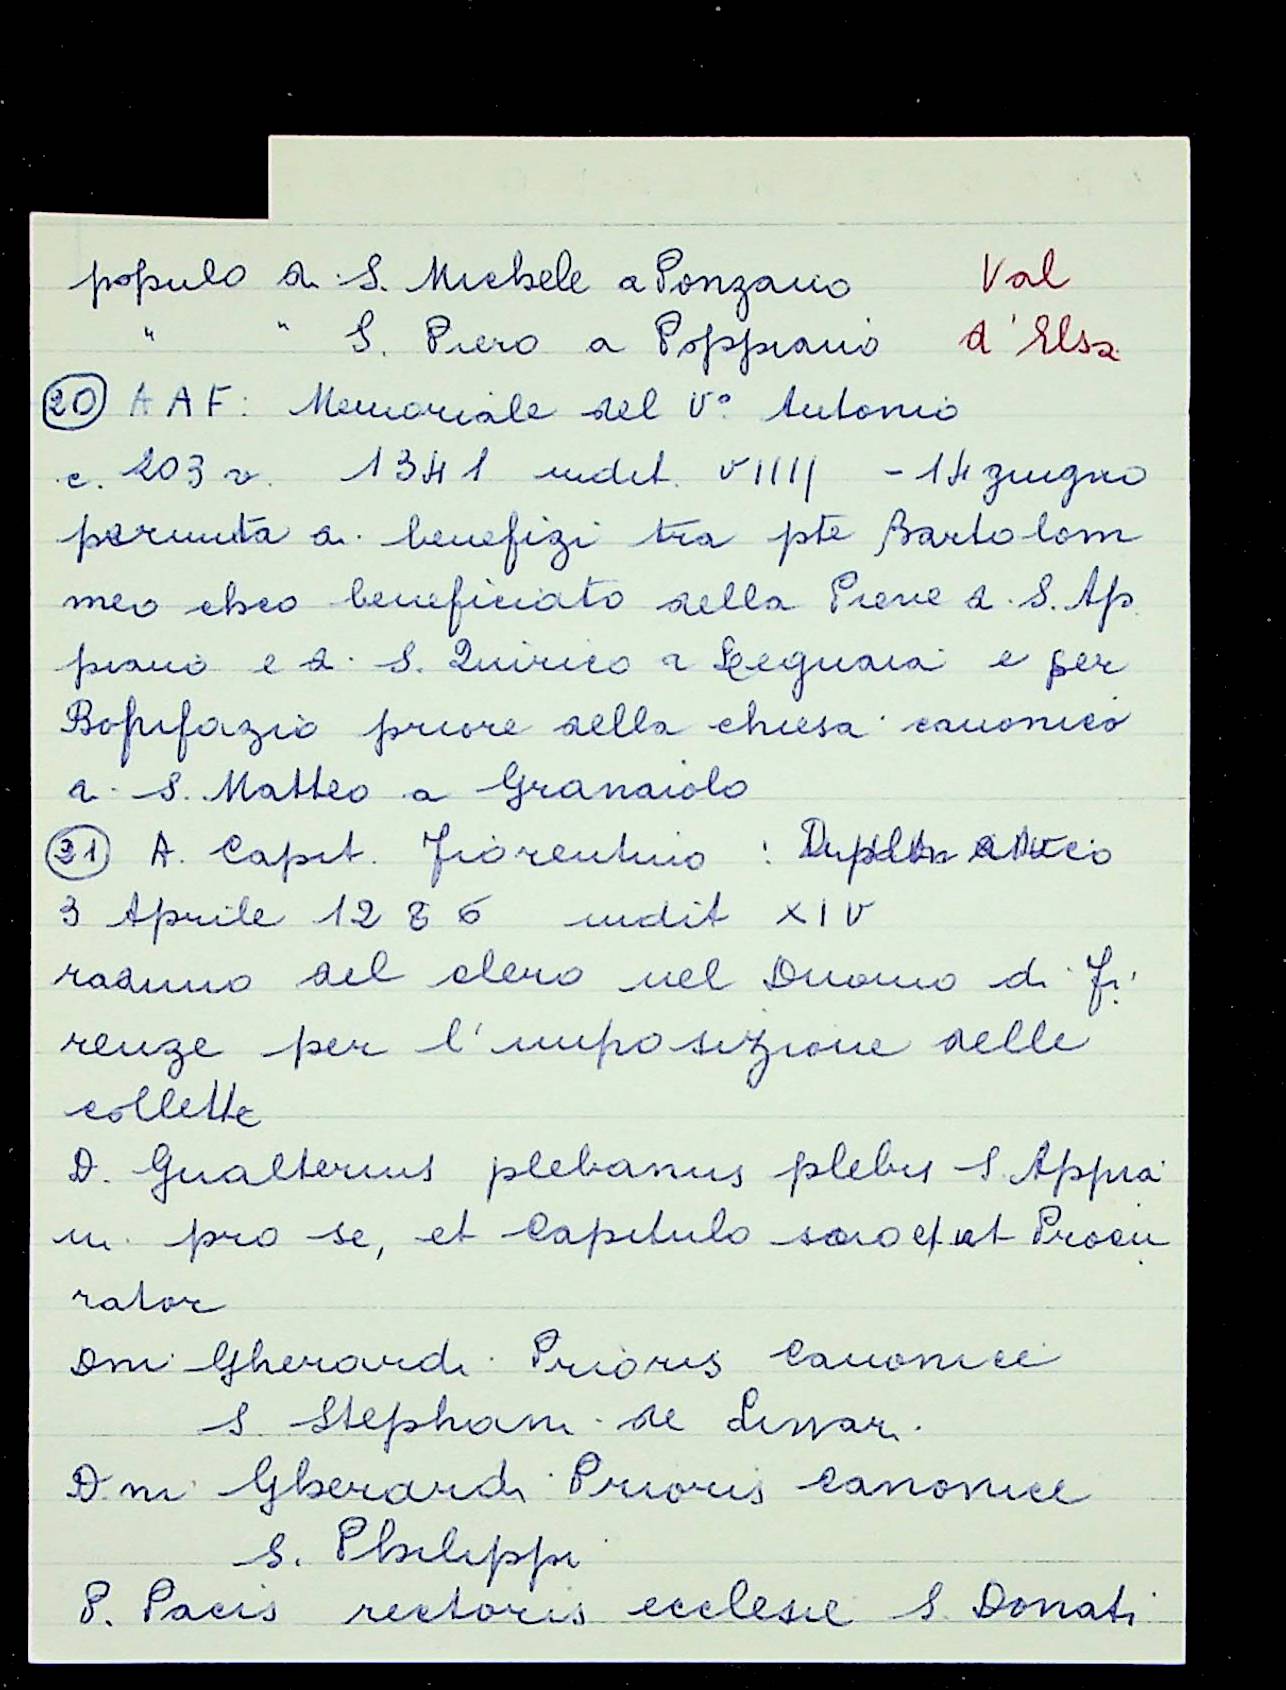 populo di S. Michele a Ponzano Val
" " S. Piero a Poppiano d'Elsa
20 A A F: Memoriale del V° Antonio
c. 203 v. 1341 indit. VIIII - 14 giugno
permuta di benefizi tra pte Bartolom
meo chco beneficiato della Pieve di S. Ap
piano e di S. Quirico a Legnaia e per
Bonifazio priore della chiesa canonico
di S. Matteo a Granaiolo
21 A. Capit. Fiorentino :
3 Aprile 1286 indit XIV
raduno del clero nel Duomo di Fi
renze per l'imposizione delle
collette
D. Gualterius plebanus plebis S. Appia
ni pro se, et Capitulo suo et ut Procu
rator
Dni Gherardi Prioris Canonice
S. Stephani de
Dni Gherardi Prioris canonice
S. Philippi
P. Pacis rectoris ecclesie S. Donati